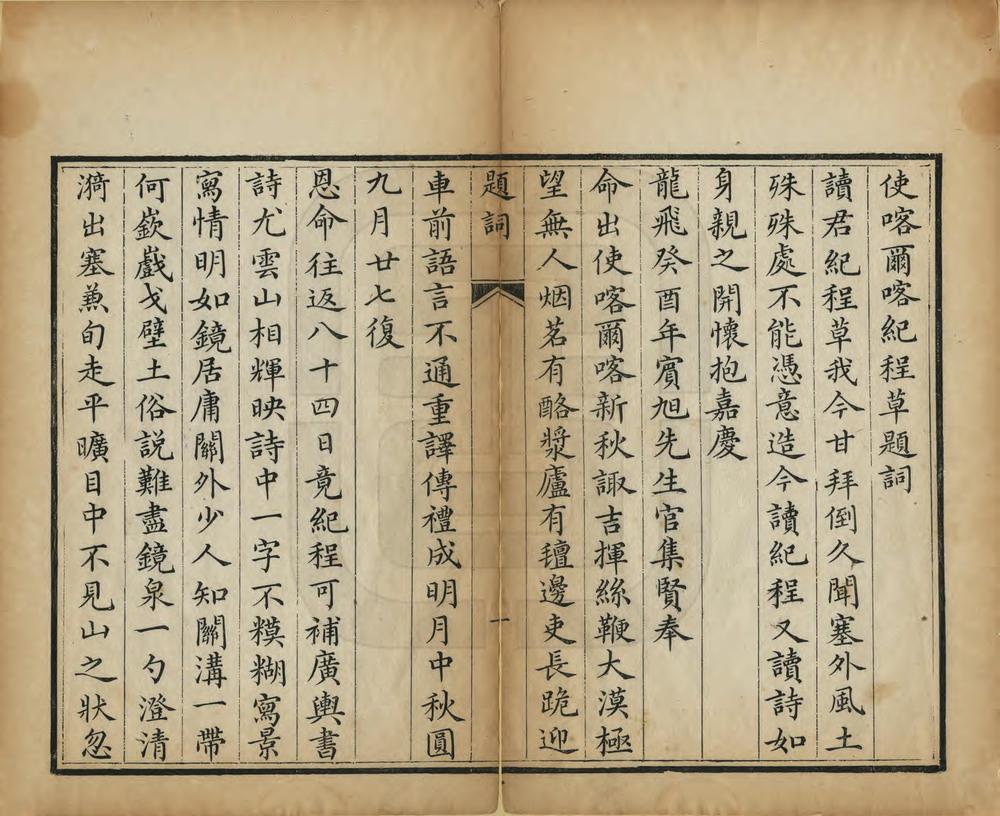 使喀爾喀紀程草題詞
讀君紀程草我今甘拜倒久聞塞外風土
殊殊處不能憑意造今讀紀程又讀詩如
身親之開懷抱嘉慶
龍飛癸酉年賓旭先生官集賢奉
命出使喀爾喀新秋諏吉揮絲鞭大漠極
望無人烟茗有酪漿廬有氊邊吏長跪迎
題詞
一
車前語言不通重譯傳禮成明月中秋圓
九月廿七復
恩命往返八十四日竟紀程可補廣輿書
詩尤雲山相輝映詩中一字不糢糊寫景
寫情明如鏡居庸關外少人知關溝一帶
何嶔巇戈壁土俗説難盡鏡泉一勺澄清
漪出塞兼旬走平曠目中不見山之狀忽